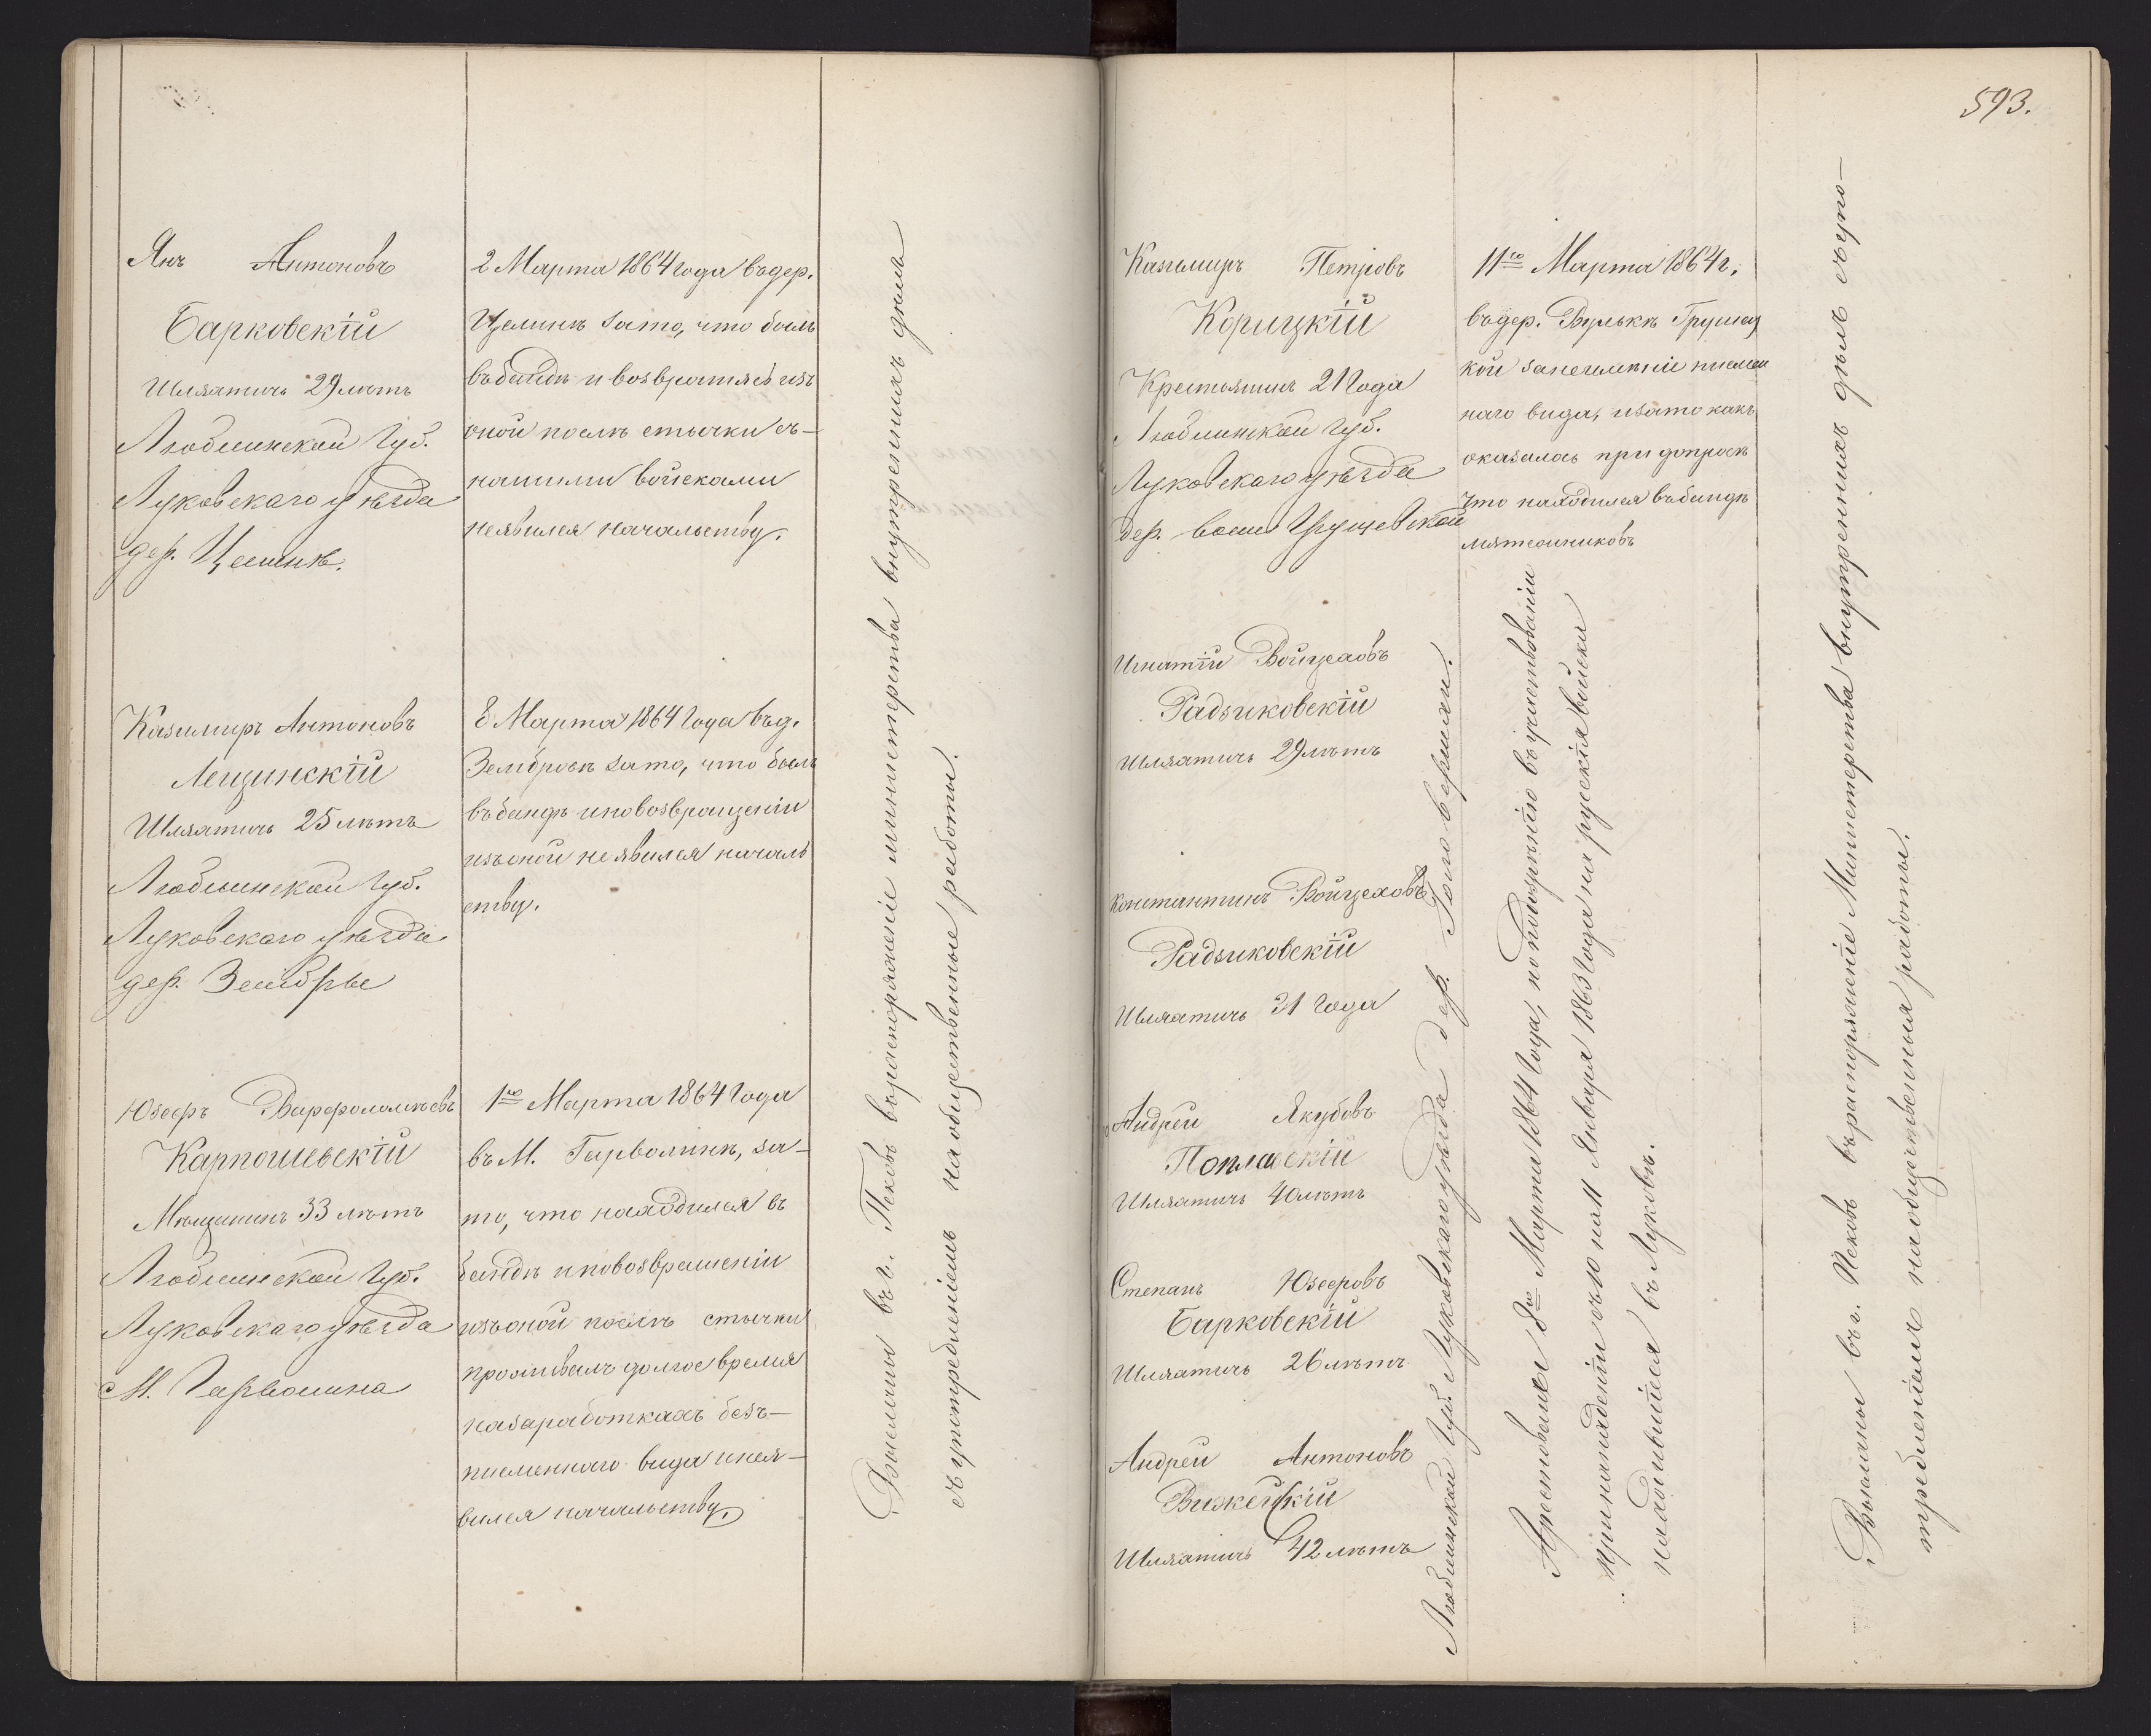 593.
Янъ Антоновъ
Барковскій
Шляхтичь 29 лѣтъ
Люблинской Губ.
Луковскаго уѣзда
дер. Целинѣ.
2 Марта 1864 года въ дер.
Целинѣ за то, что былъ
въ бандѣ и возвратясь изъ
оной послѣ стычки съ
нашими войсками
неявился начальству.
Казимиръ Антоновъ
Лещинскій
Шляхтичь 25 лѣтъ
Люблинской Губ.
Луковскаго уѣзда
дер. Зембры
8 Марта 1864 года въ д.
Зембровѣ за то, что былъ
въ бандѣ и по возвращеніи
изъ оной не явился началь
ству.
Юзефъ Варфоломѣевъ
Карпошевскій
Мѣщанинъ 33 лѣтъ
Люблинской Губ.
Луковскаго уѣзда
М. Гарволина
1го Марта 1864 года
въ М. Гарволинѣ, за-
то, что находился въ
бандѣ и по возвращеніи
изъ оной послѣ стычки
проживалъ долгое время
на заработкахъ безъ-
писменнаго вида и нея-
вился начальству
Высланы въ г. Псковъ въ распоряженіе министерства внутреннихъ дѣлъ
съ употребленіемъ на общественные работы.
Казимиръ Петровъ
Корицкій
Крестьянинъ 21 года
Люблинской Губ.
Луковскаго уѣзда
дер. воли Грущевской
11го Марта 1864 г.
въ дер. Вулькѣ Грущев
кой за неимѣніе писмен
наго вида, и за то какъ
оказалось при допросѣ
что находился въ бандѣ
мятежниковъ
Игнатій Войцеховъ
Радзиковскій
Шляхтичь 29 лѣтъ
Константинъ Войцеховъ
Радзиковскій
Шляхтичь 31 года
Андрей Якубовъ
Поплавскій
Шляхтичь 40 лѣтъ
Степанъ Юзефовъ
Барковскій
Шляхтичь 26 лѣтъ
Андрей Антоновъ
Вижейскій
Шляхтичь 42 лѣтъ
Люблинской Губ. Луковскаго уѣзда дер.
Арестованы 8го Марта 1864 года, по подозрѣнію въ участвованіи
при нападеніи съ 10 на 11 Января 1863 года на русскія войска
находившіеся въ Луковѣ.
Высланы въ г. Псковъ въ распоряженіе Министерства внутреннихъ дѣлъ съ упо-
требленіемъ на общественныя работы.